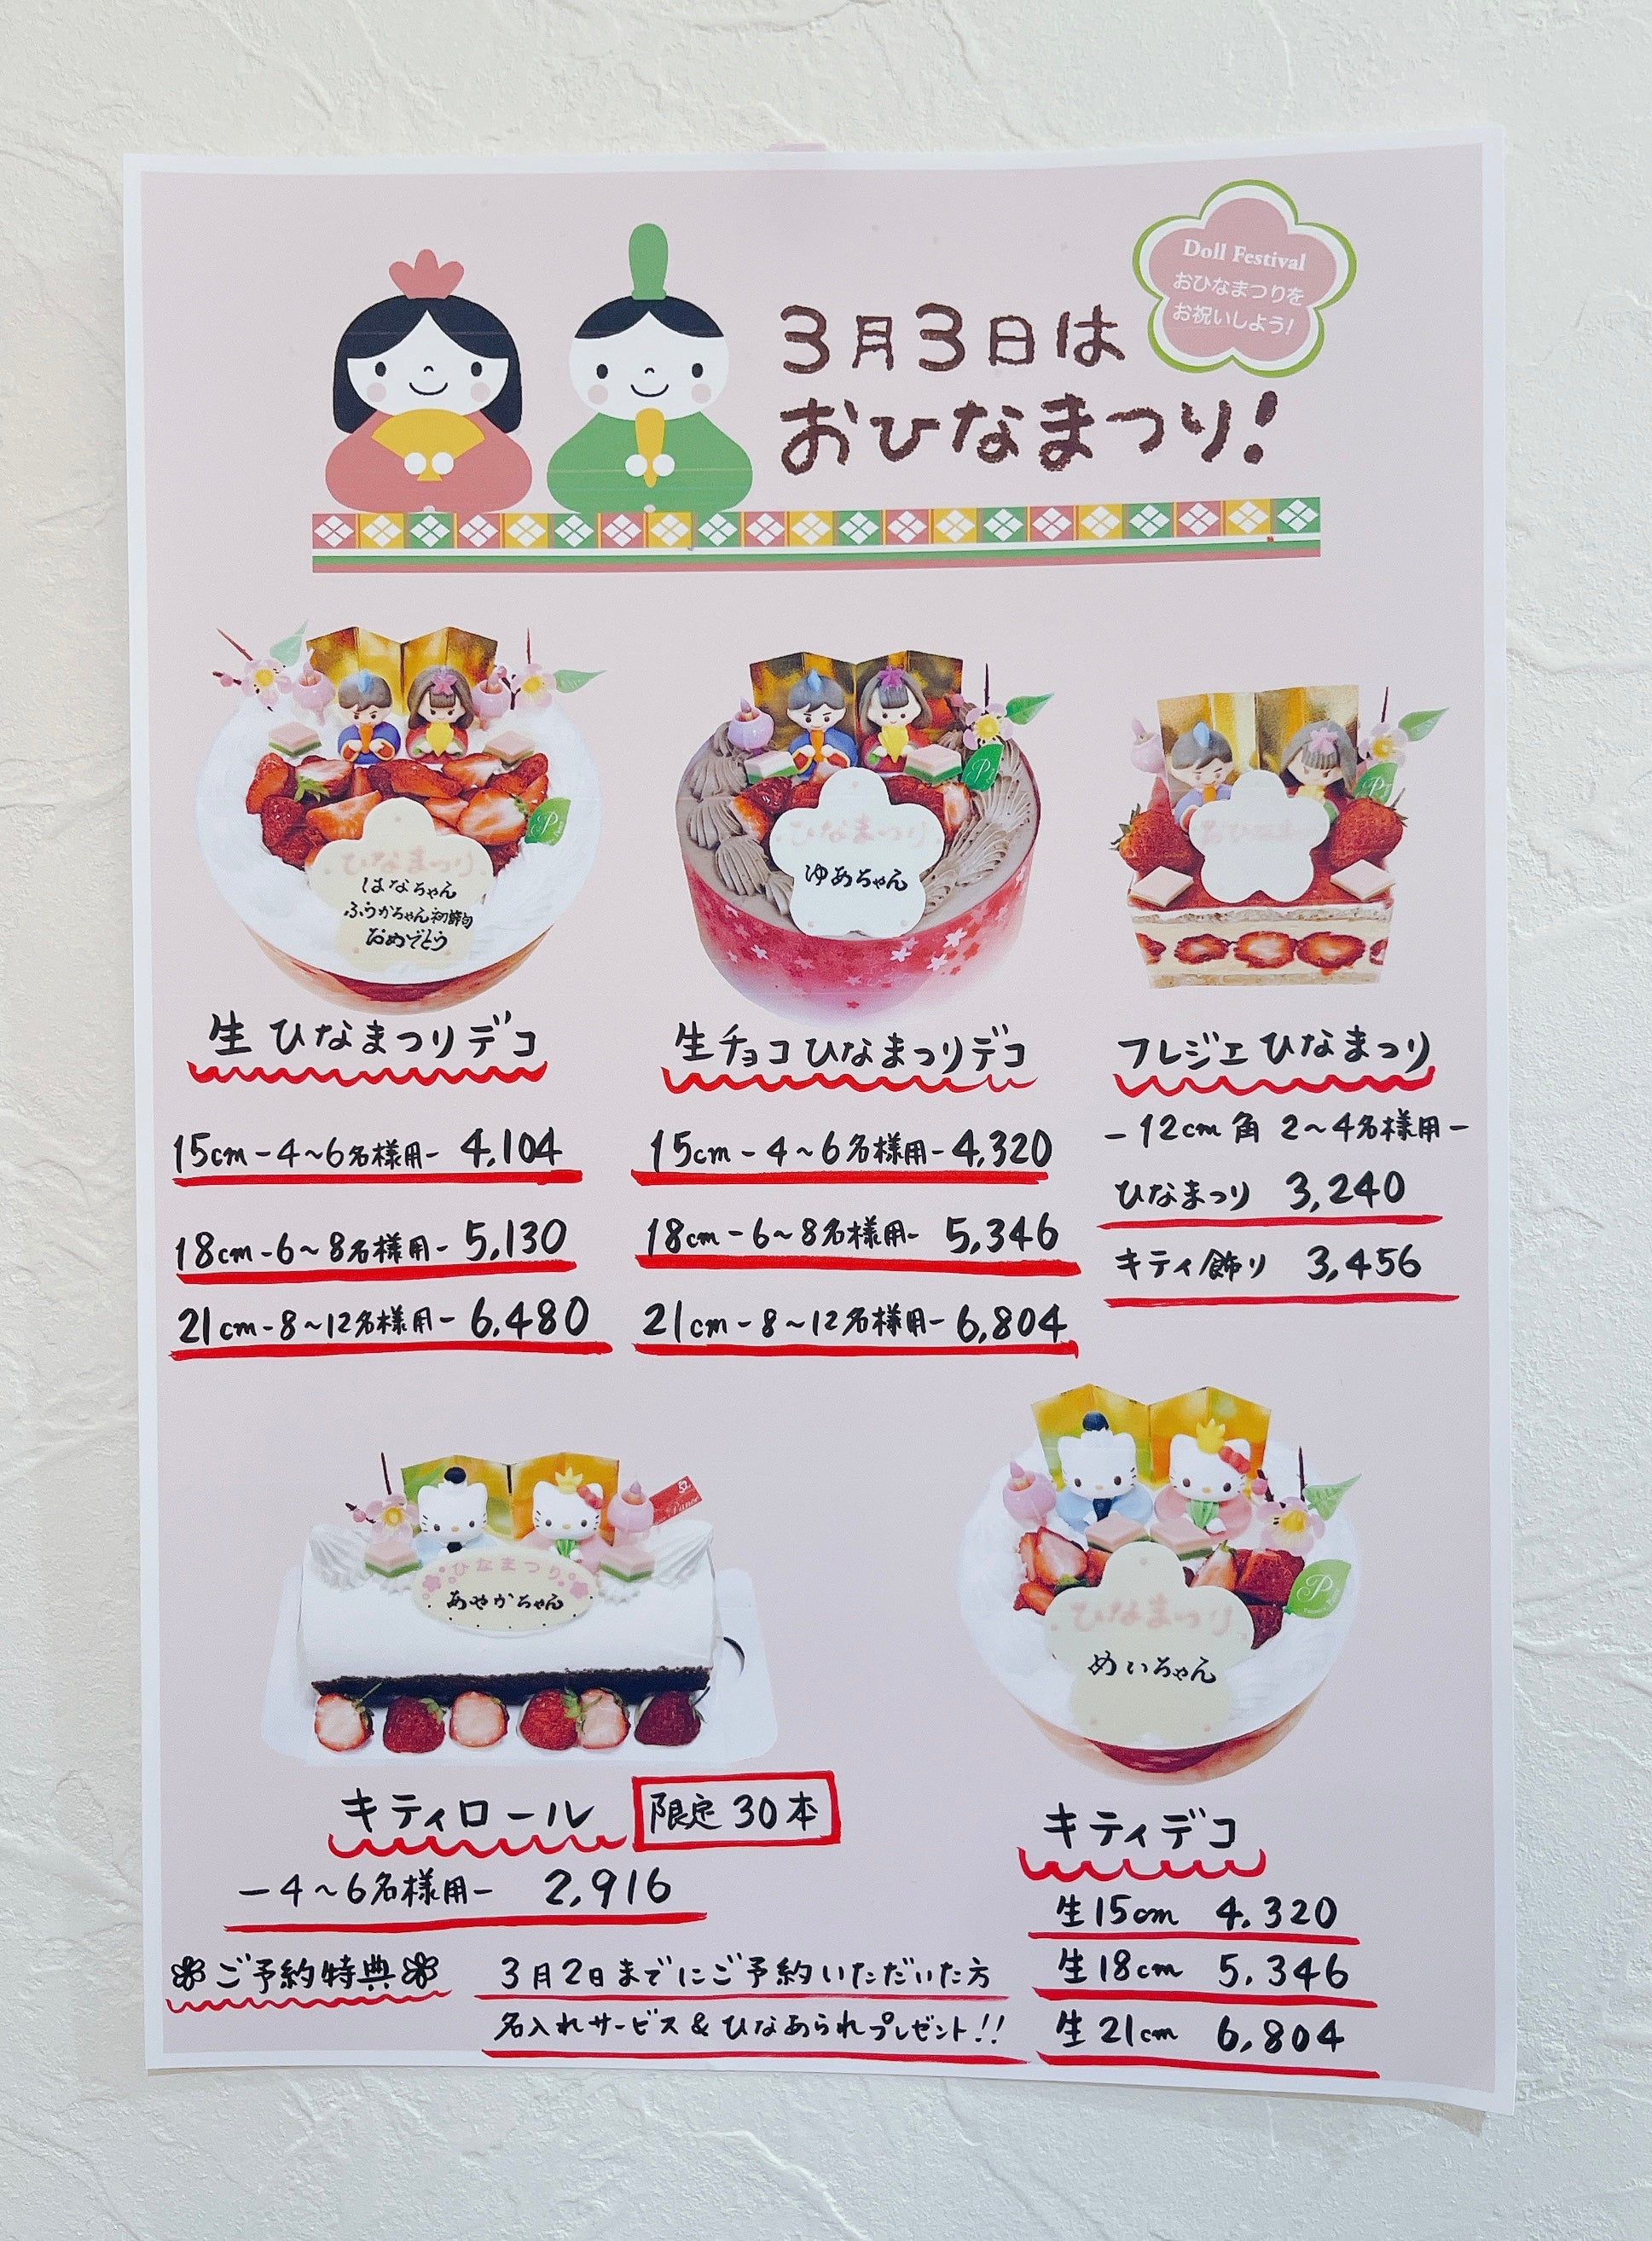 Doll Festival
おひなまつりを
お祝いしよう!
3月3日は
おひなまつり!
ひなまつり
はなちゃん
ふうかちゃん初節句
おめでとう
ひなまつり
ゆあちゃん
生 ひなまつりデコ
15cm-4~6名様用- 4,104
18cm-6~8名様用- 5,130
21cm-8~12名様用- 6,480
生チョコひなまつりデコ
15cm-4~6名様用-4,320
18cm-6~8名様用- 5,346
21cm-8~12名様用-6,804
フレジエ ひなまつり
-12cm角 2~4名様用-
ひなまつり 3,240
キティ飾り 3,456
ひなまつり
あやかちゃん
キティロール 限定30本
-4~6名様用- 2,916
ひなまつり
めいちゃん
キティデコ
生15cm 4,320
生18cm 5,346
生21cm 6,804
ご予約特典
3月2日までにご予約いただいた方
名入れサービス&ひなあられプレゼント!!